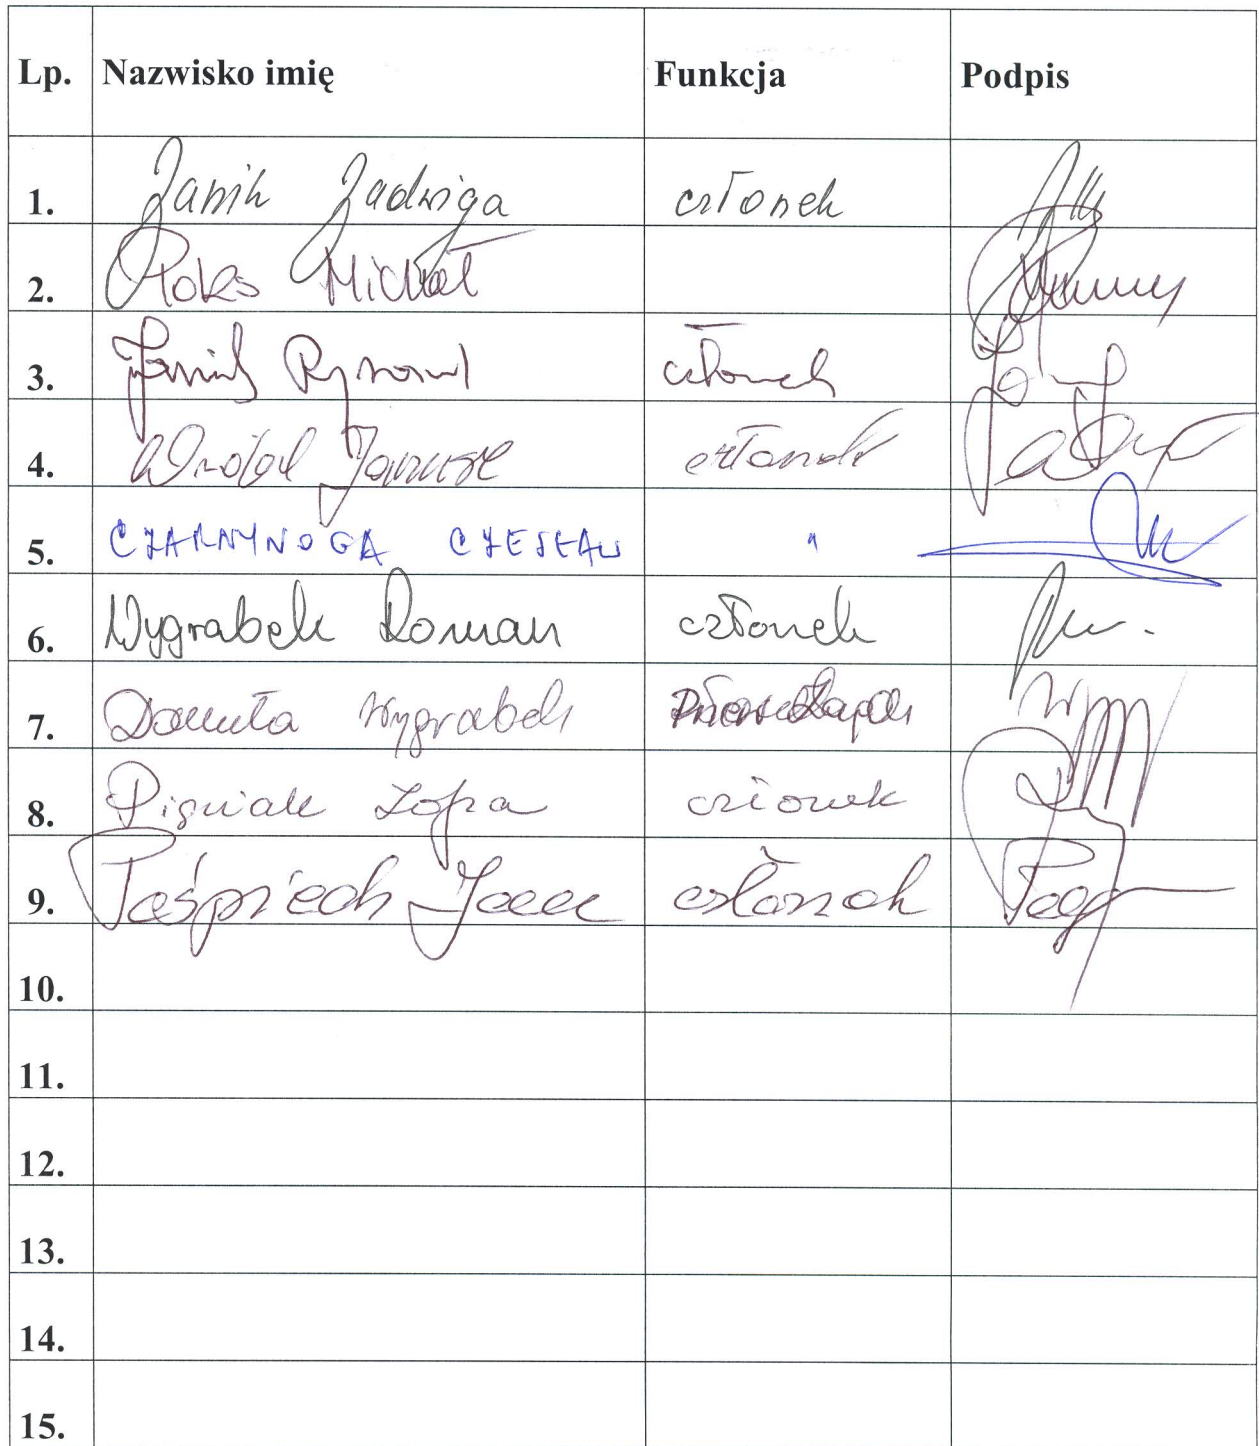 Lp. Nazwisko imię Funkcja Podpis
1. Janik Jadwiga członek
2. Ploks Michał
3. Janik Ryszard członek
4. Wróbel Janusz członek
5. CZARNYNOGA CZESŁAW "
6. Wygrabek Roman członek
7. Danuta Wygrabek
8. Pigniak Zofia członek
9. Pośpiech Jacek członek
10.
11.
12.
13.
14.
15.